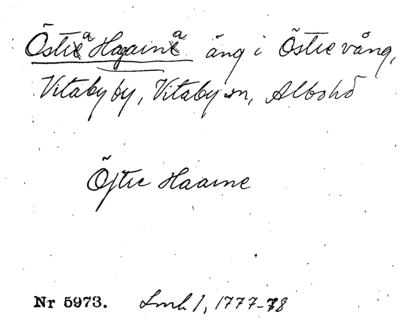 Östra Hagarna äng i Östre vång,
Vitaby by, Vitaby sn, Albo hd
Östre Haarne
Nr 5973. Lmh 1, 1777-78